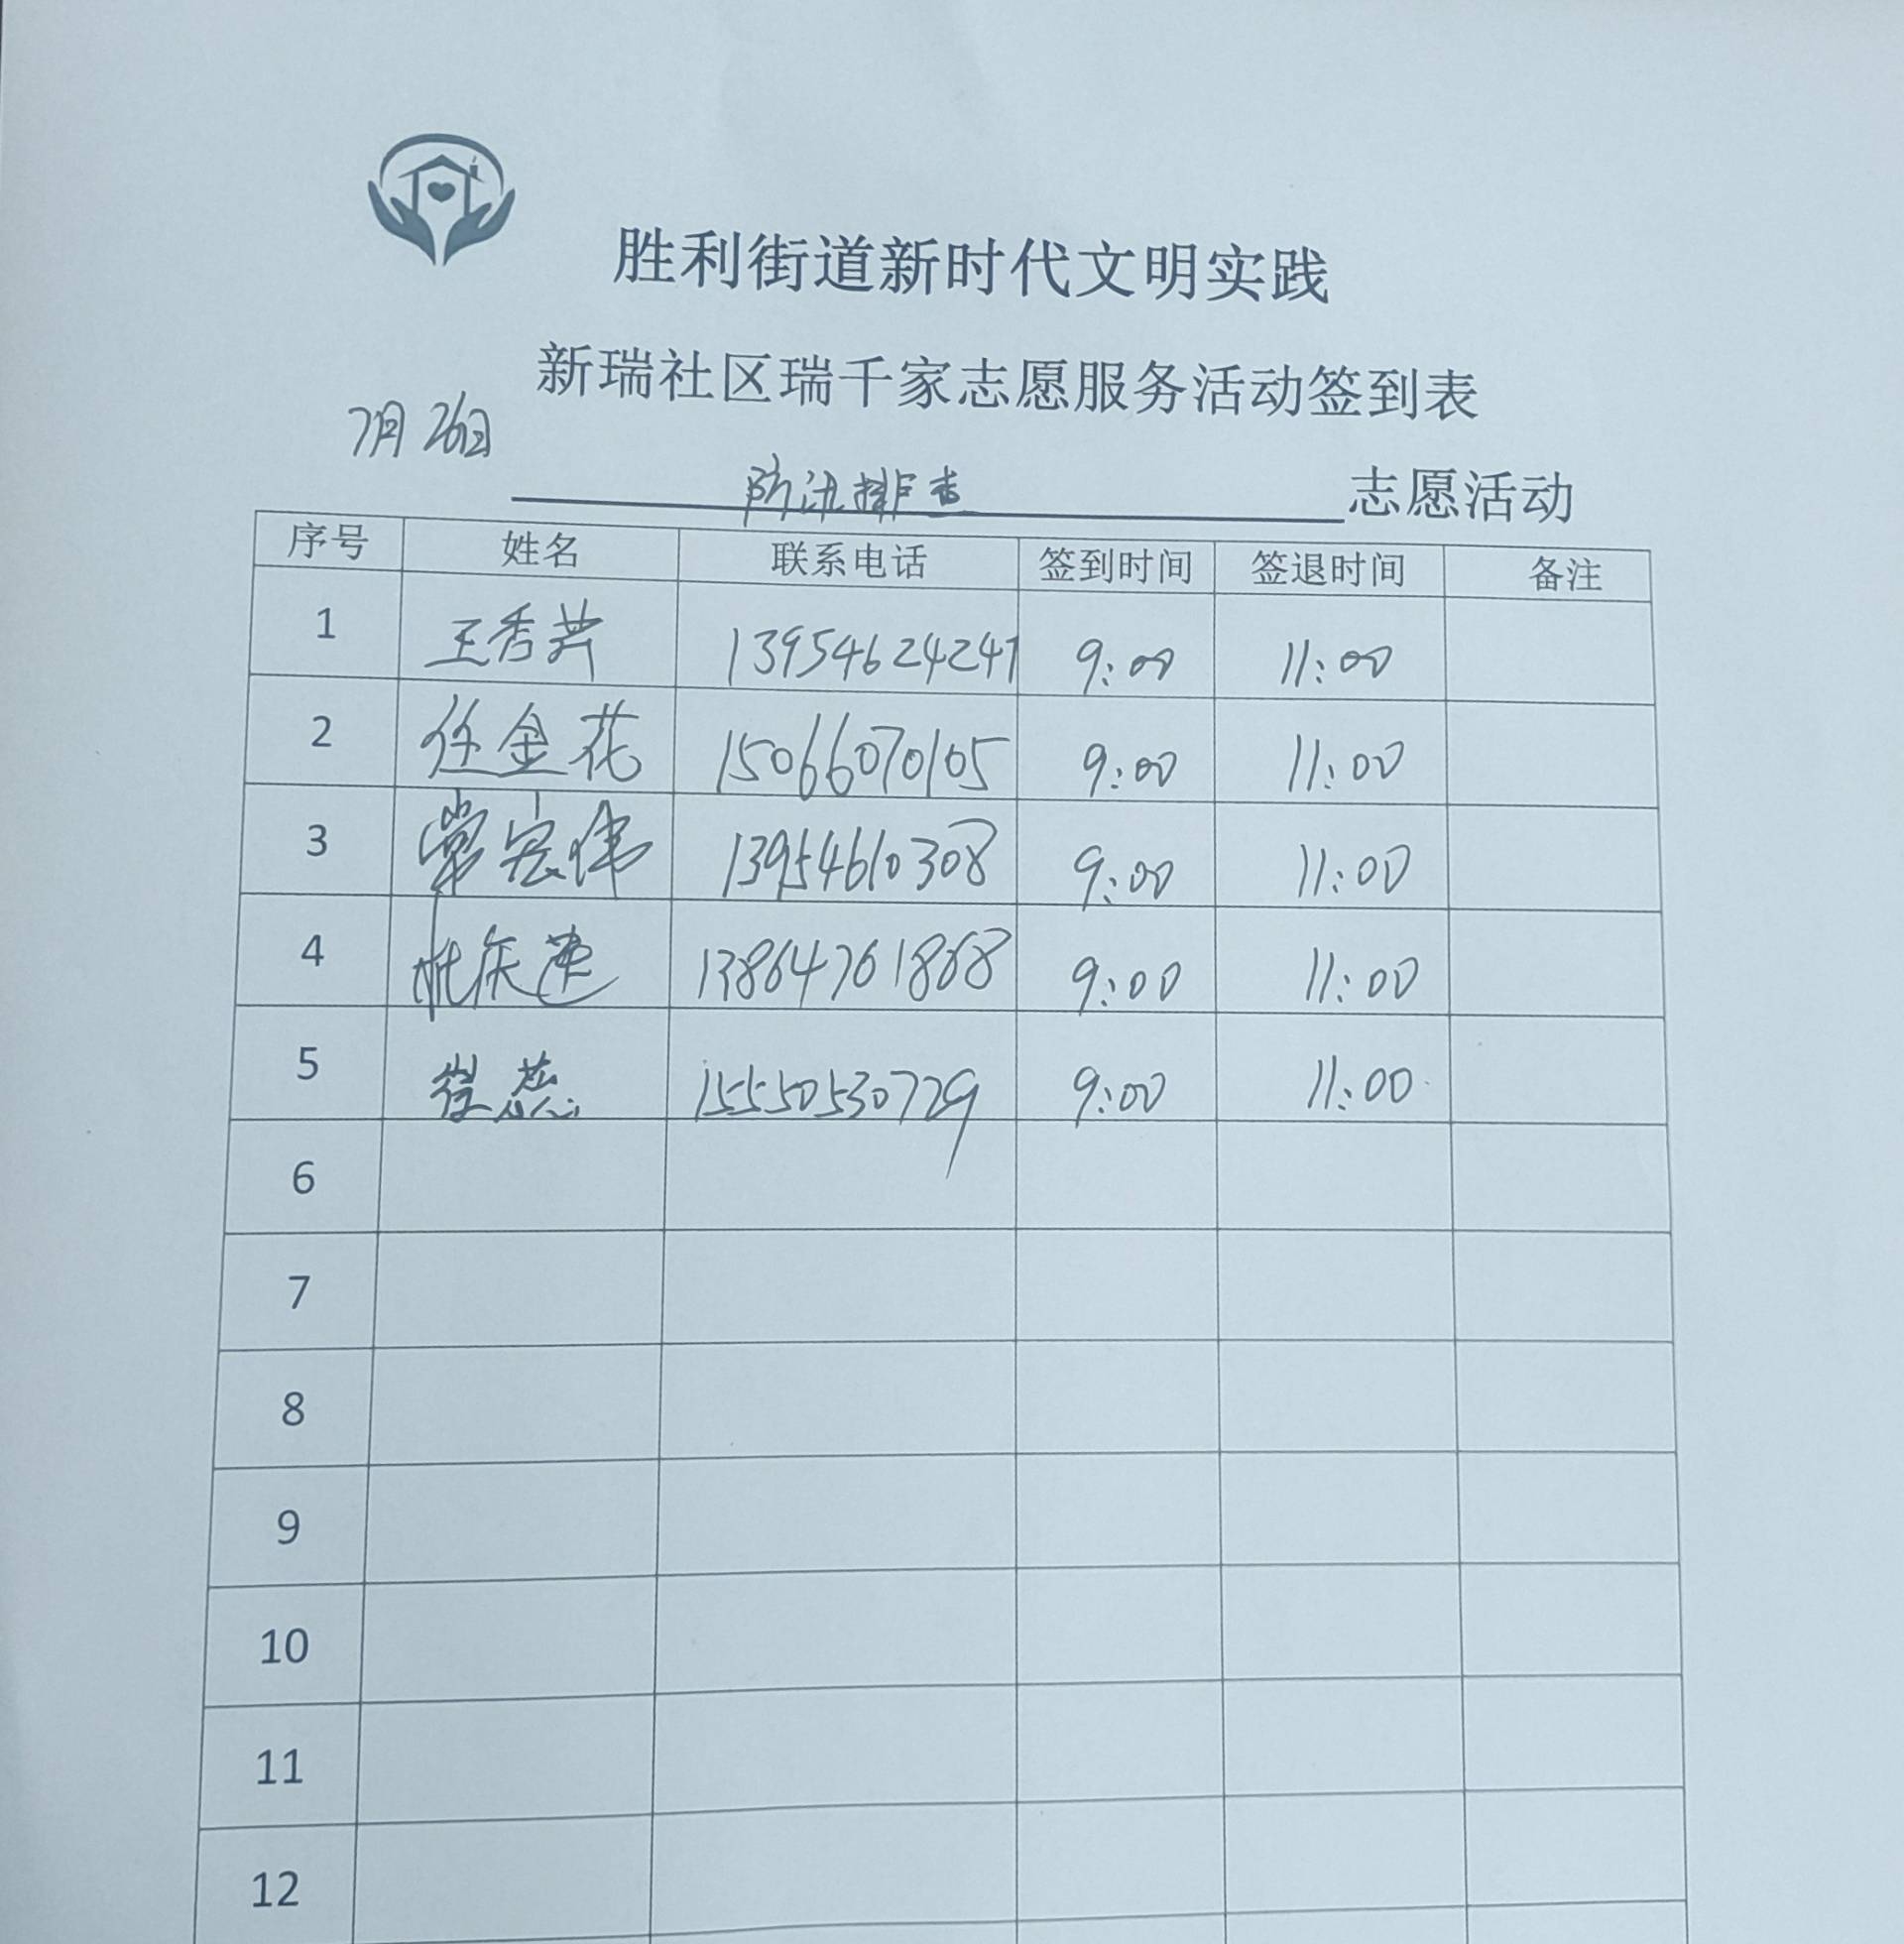 胜利街道新时代文明实践
新瑞社区瑞千家志愿服务活动签到表
7月26日
防汛排查 志愿活动
序号 姓名 联系电话 签到时间 签退时间 备注
1 王秀 13954624241 9:00 11:00
2 任金花 15066070105 9:00 11:00
3 常宏伟 13954610308 9:00 11:00
4 13864761868 9:00 11:00
5 崔蕊 15550530729 9:00 11:00
6
7
8
9
10
11
12